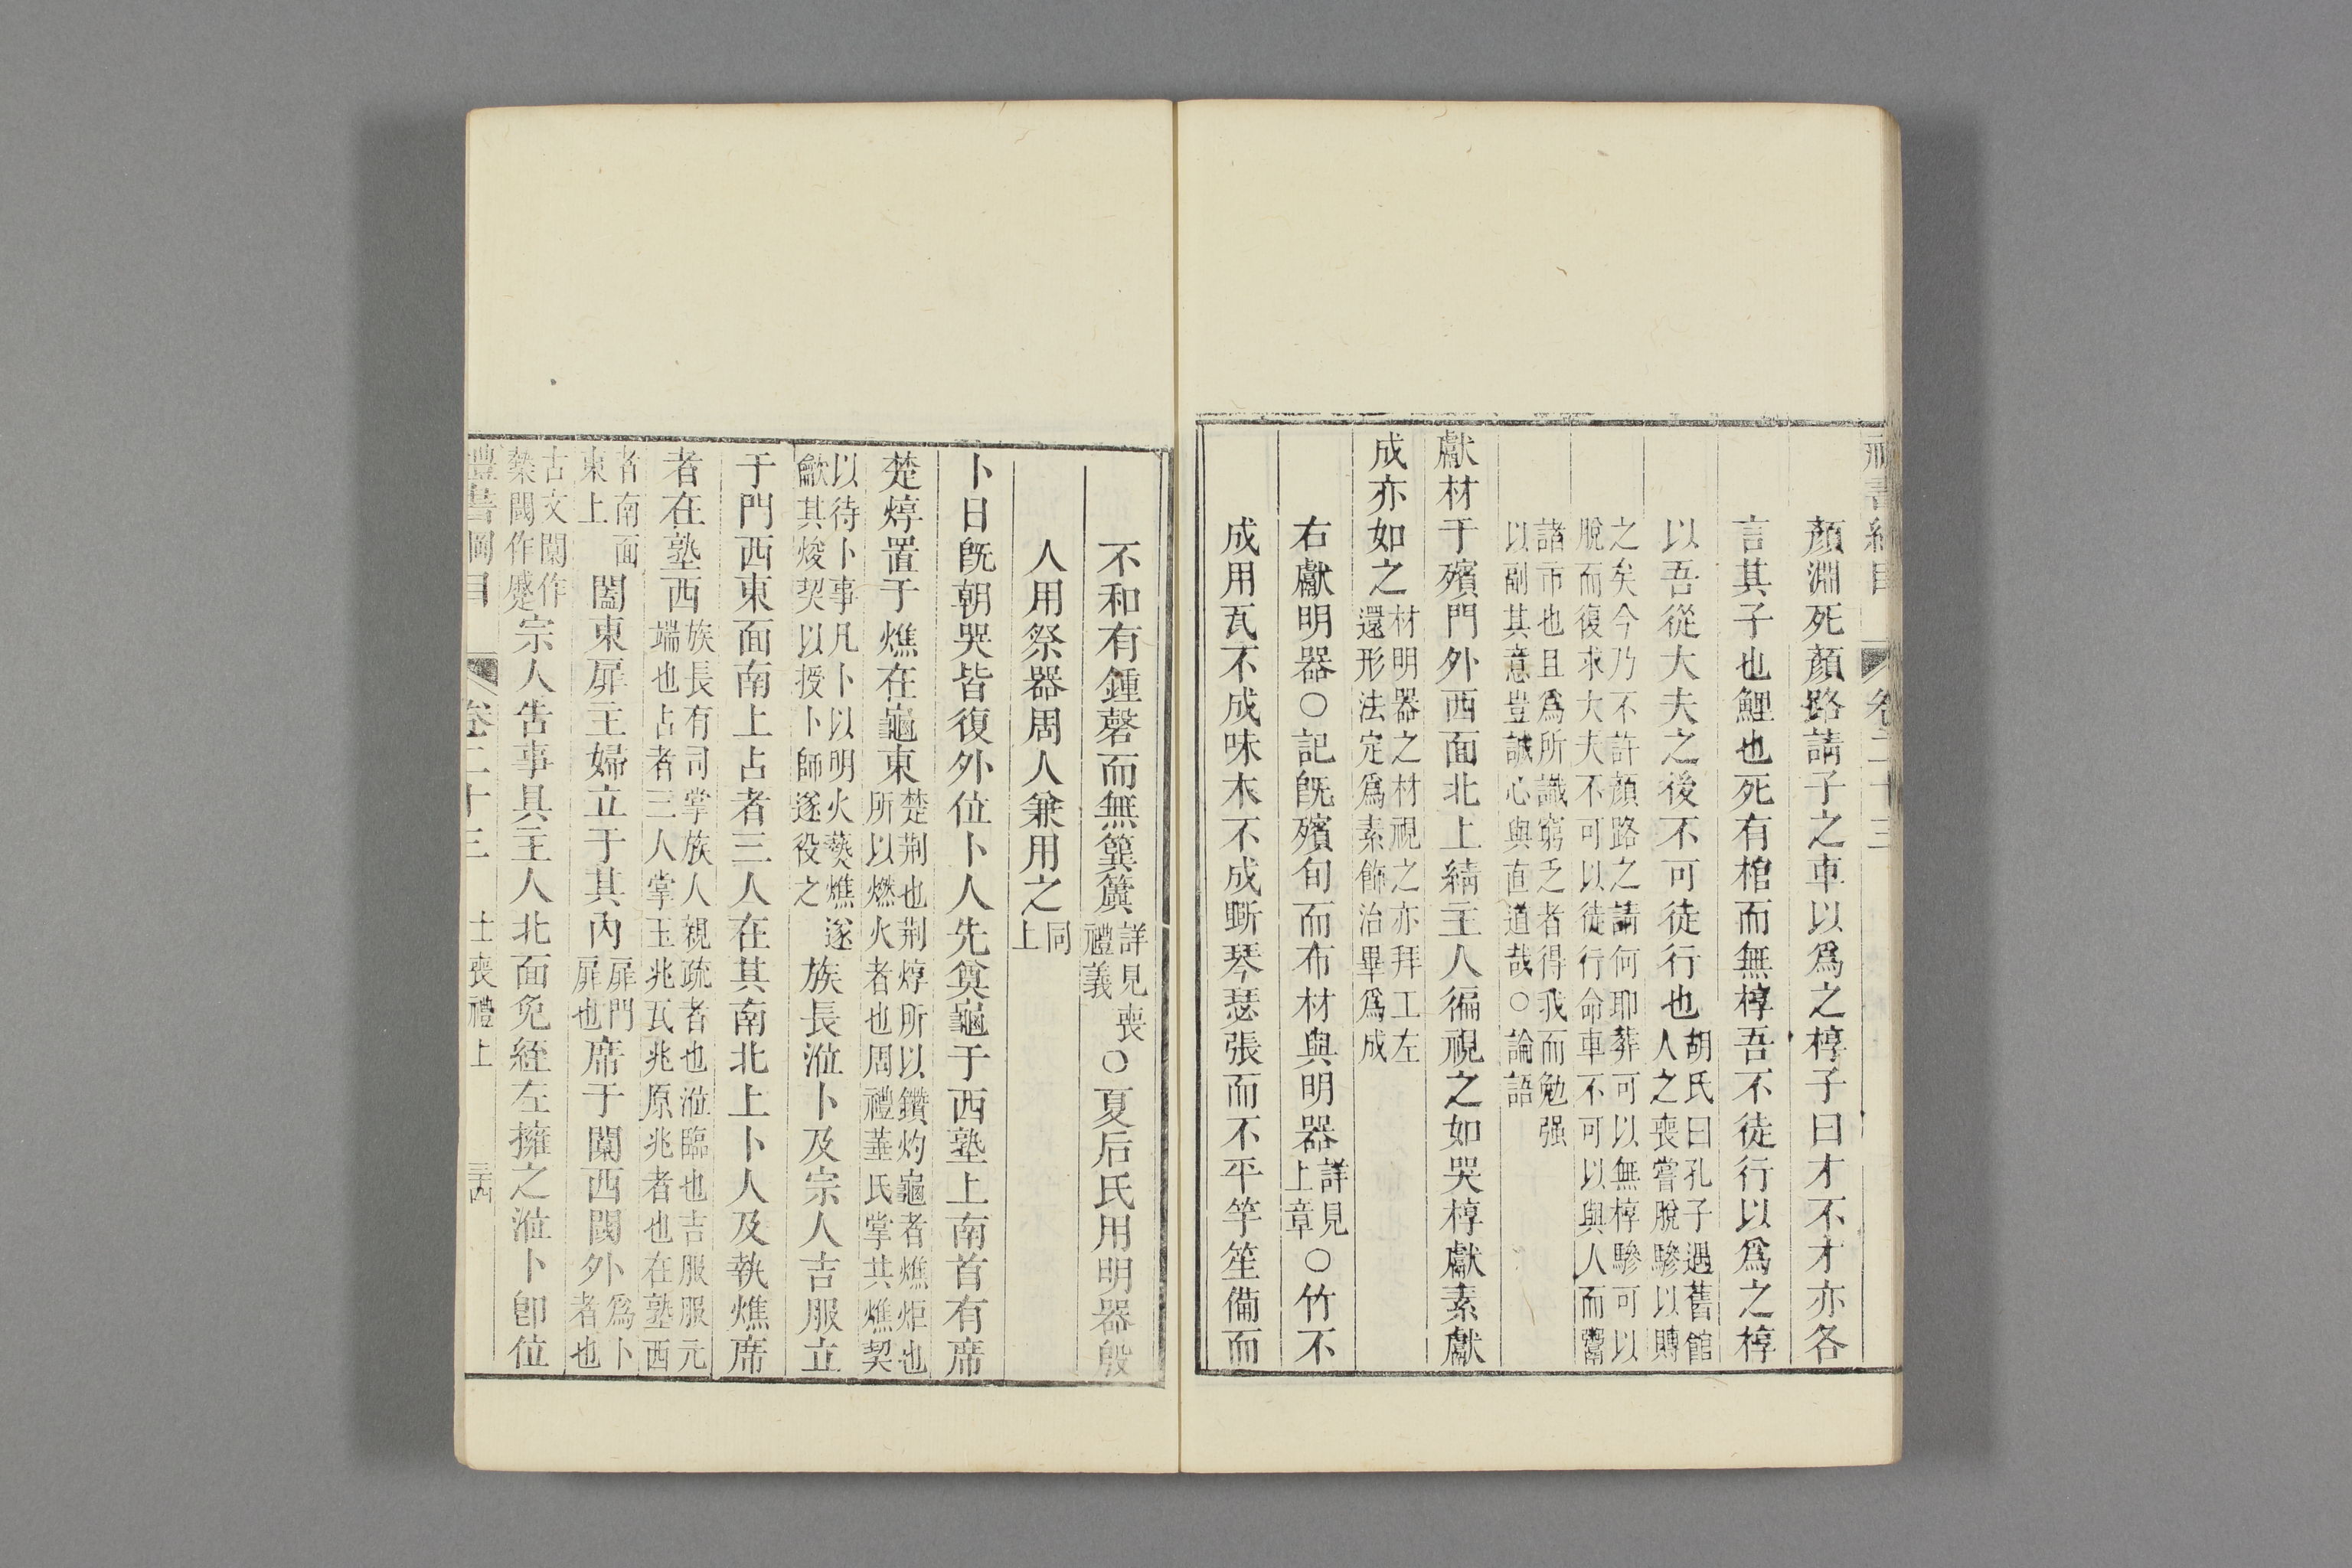 禮書綱目 卷二十三
顏淵死顏路請子之車以爲之椁子曰才不才亦各
言其子也鯉也死有棺而無椁吾不徒行以爲之椁
以吾從大夫之後不可徒行也胡氏曰孔子遇舊館人之喪嘗脫驂以賻
之矣今乃不許顏路之請何耶葬可以無椁驂可以脫而復求大夫不可以徒行命車不可以與人而鬻
諸市也且爲所識窮乏者得我而勉强以副其意豈誠心與直道哉○論語
獻材于殯門外西面北上綪主人徧視之如哭椁獻素獻
成亦如之材明器之材視之亦拜工左還形法定爲素飾治畢爲成
右獻明器○記旣殯旬而布材與明器詳見上章○竹不
成用瓦不成味木不成斲琴瑟張而不平竽笙備而
不和有鍾磬而無簨簴詳見喪禮義○夏后氏用明器殷
人用祭器周人兼用之同上
卜日旣朝哭皆復外位卜人先奠龜于西塾上南首有席
楚焞置于燋在龜東楚荆也荆焞所以鑽灼龜者燋炬也所以燃火者也周禮菙氏掌共燋契
以待卜事凡卜以明火爇燋遂龡其焌契以授卜師遂役之族長涖卜及宗人吉服立
于門西東面南上占者三人在其南北上卜人及執燋席
者在塾西族長有司掌族人親疏者也涖臨也吉服服元端也占者三人掌玉兆瓦兆原兆者也在塾西
者南面東上闔東扉主婦立于其內扉門扉也席于闑西閾外爲卜者也
古文闑作槷閾作蹙宗人告事具主人北面免絰左擁之涖卜卽位
禮書綱目 卷二十三 士喪禮上 三四